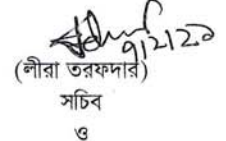 ৯।২।২০
(লীরা তরফদার)
সচিব
ও